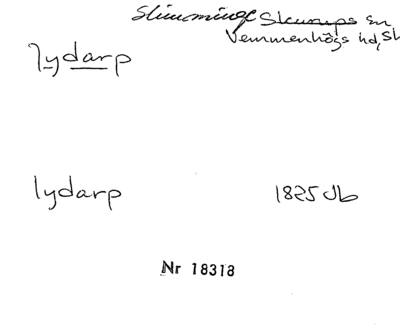 Slimminge Skurups sn
Vemmenhögs hd, Sk
lydarp
lydarp 1825 Jb
Nr 18318